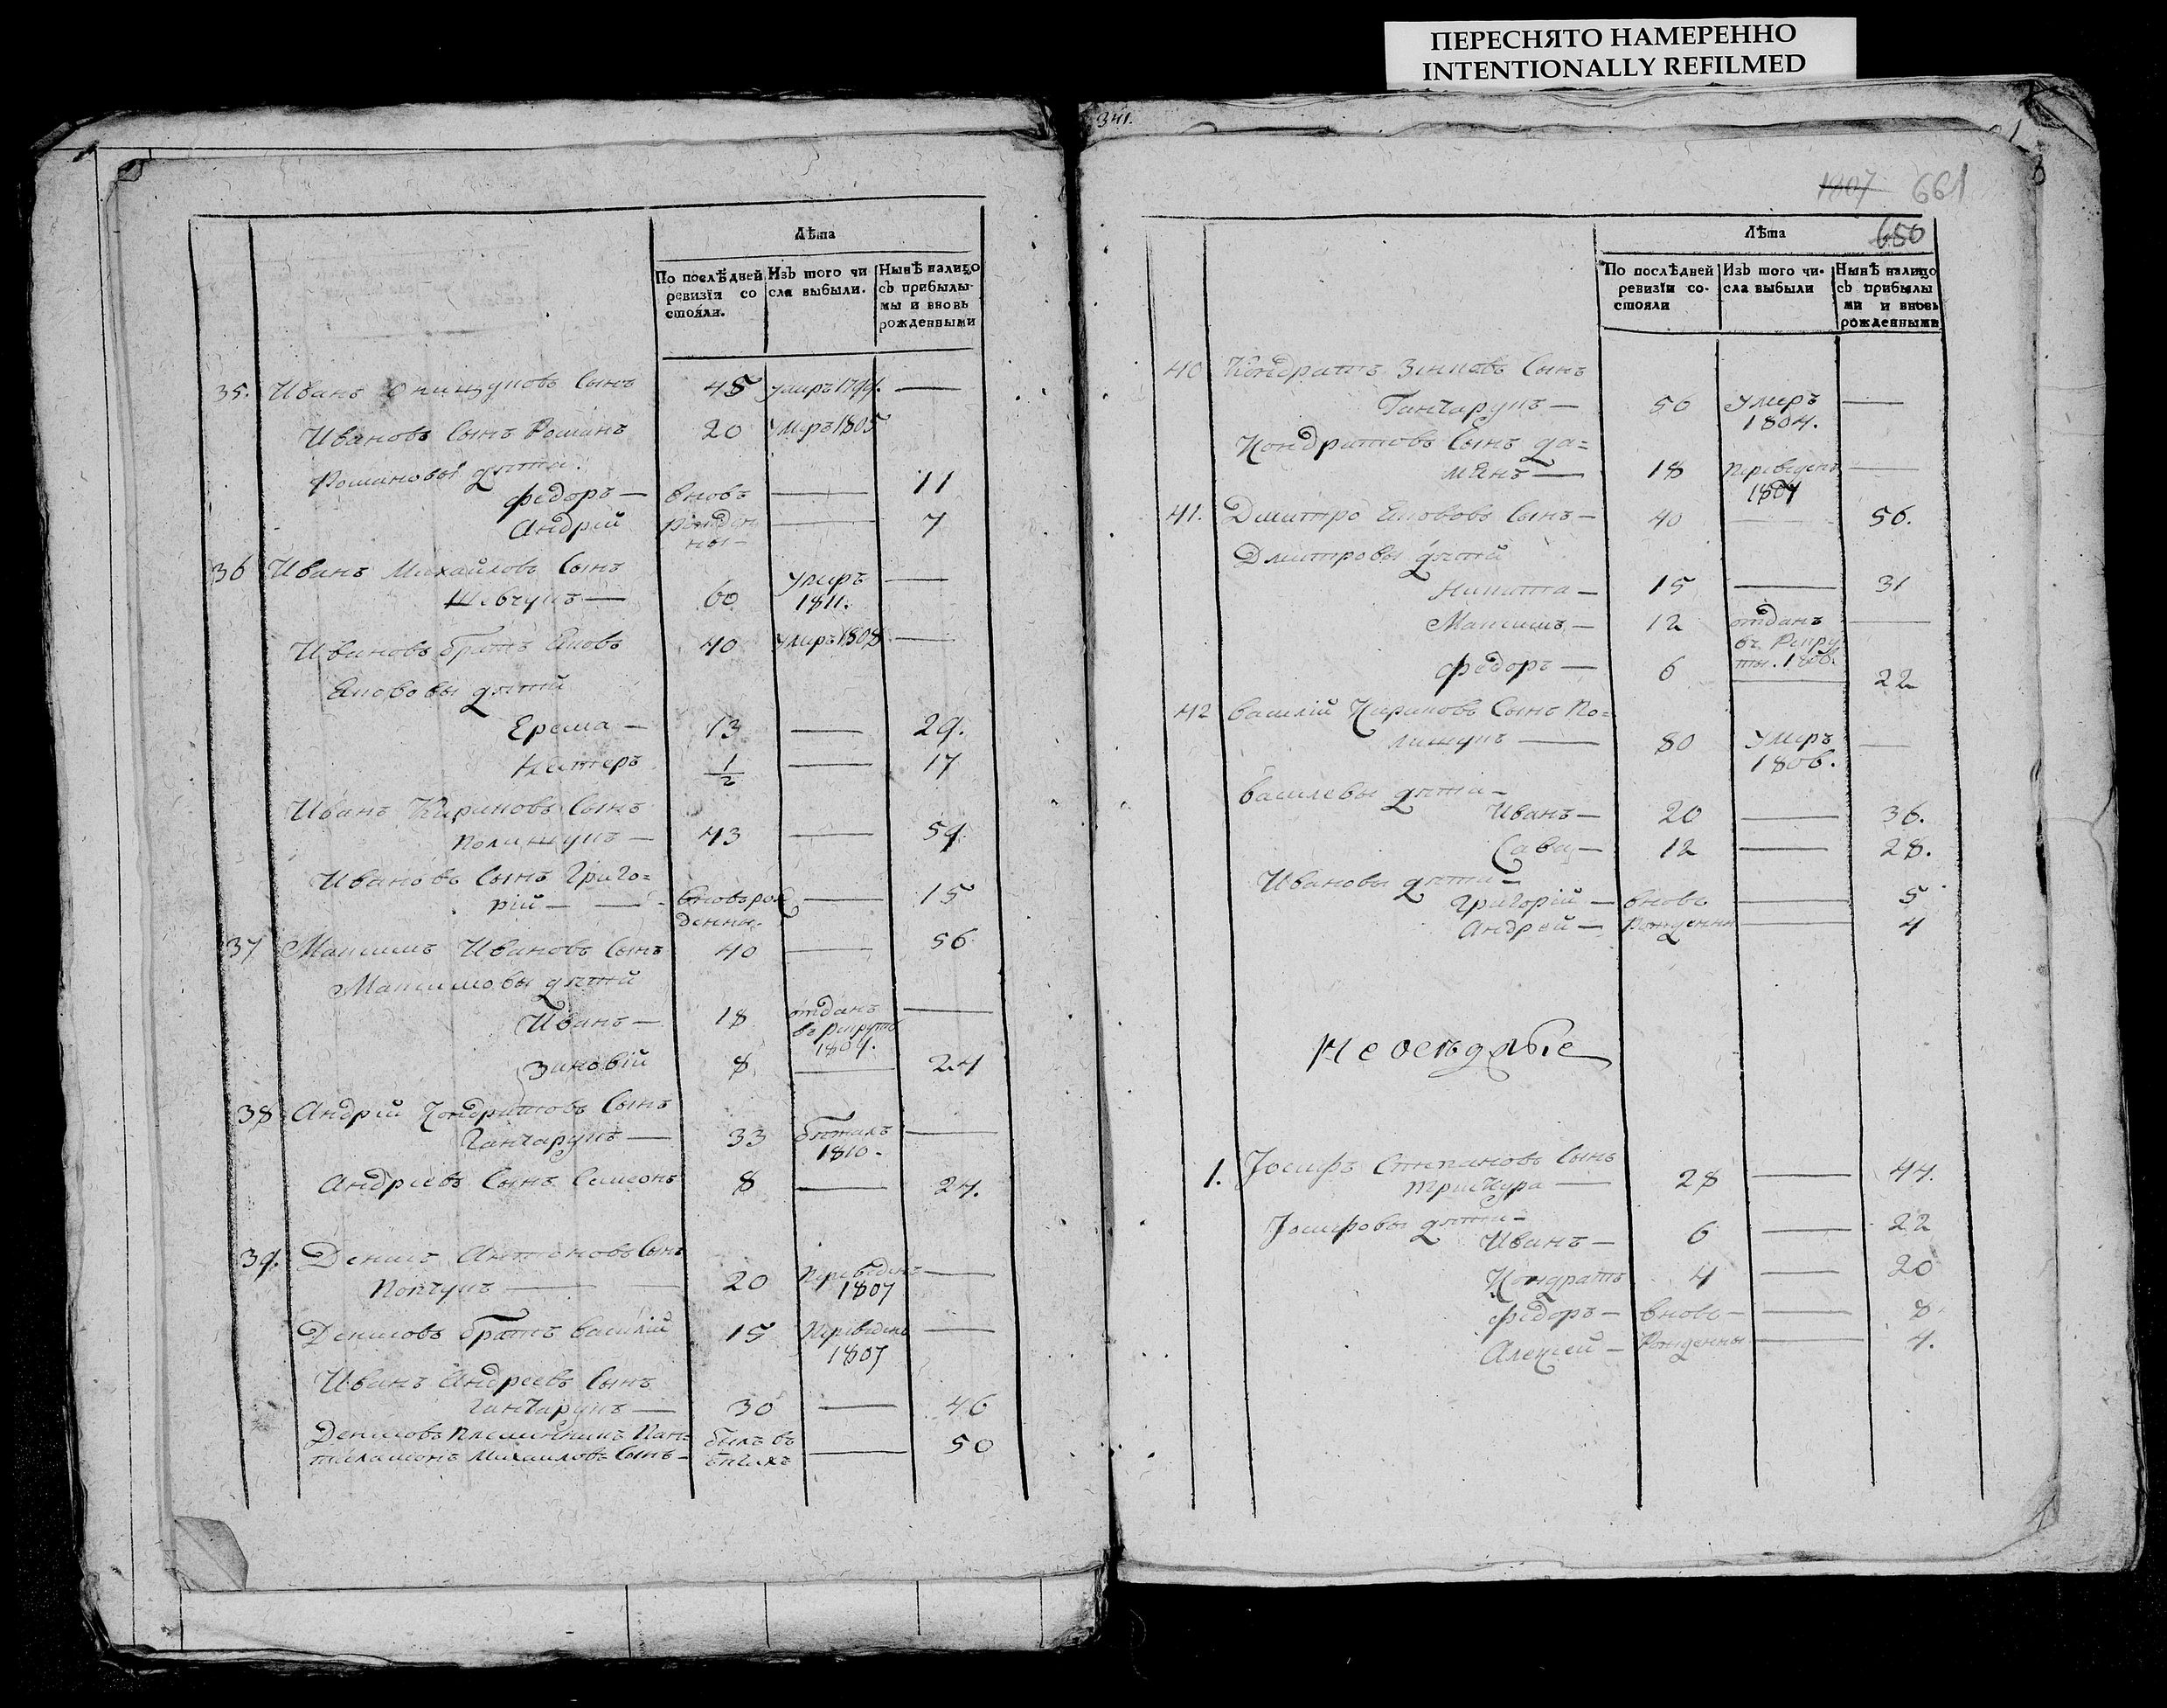 ПЕРЕСНЯТО НАМЕРЕННО
INTENTIONALLY REFILMED
Лѣта
По послѣдней ревизїи со стояли.
Изъ того чи сла выбыли.
Нынѣ налицо съ прибылы- мы и вновь рожденными
35. Иванъ сынъ 45 умиръ 1799. —
Ивановъ Сынъ Романъ 20 умиръ 1805
Романовы дѣти:
Федоръ — вновь — 11
Андрій рожден ны — — 7
36 Иванъ Михайловъ Сынъ
Шевчукъ — 60 умиръ 1811. —
Ивановъ братъ Яковъ 40 умиръ 1808 —
Яковова дѣтй
Ерема — 13 — 29.
Нестеръ 1/2 — 17
Иванъ Кириковъ Сынъ
Полищукъ — 43 — 59.
Ивановъ Сынъ Григо=
рій — — вноврож денны. — 15
37 Максимъ Ивановъ Сынъ 40 — 56
Максимовы дѣтй
Иванъ — 18 отданъ въ рикруты 1804. —
Зиновій 8 — 24
38. Андрій Кондратовъ Сынъ
Ганчарукъ — 33 бѣжалъ 1810 — —
Андріевъ Сынъ Симеонъ 8 — 24.
39. Денисъ Антоновъ Сынъ
Попчукъ — 20 переведенъ 1807 —
Денисовъ братъ Василій 15 переведенъ 1807 —
Иванъ Андреевъ Сынъ
Ганчарукъ — 30 — 46
Денисовъ племянникъ Пан=
тилимонъ Михаиловъ Сынъ — былъ въ бѣгахъ — 50
341.
1807 661
650
Лѣта
По послѣдней ревизїи со- стояли
Изъ того чи- сла выбыли
Нынѣ налицо съ прибылы ми и вновь рожденными
40 Кондратъ Зиновъ Сынъ
Ганчарукъ — 56 умиръ 1804. —
Кондратовъ Сынъ да=
мянъ — 18 переведенъ 1807 —
41. Дмитро Якововъ Сынъ — 40 — 56.
Дмитровы дѣтй
Никита — 15 — 31
Максимъ — 12 отданъ въ Рикру ты. 1806. —
Федоръ — 6 — 22
42 Василій Кириковъ Сынъ По=
лищукъ — 80 умиръ 1806. —
Василевы дѣти —
Иванъ — 20 — 36.
Сава — 12 — 28.
Ивановы дѣти —
Григорій — вновь — 5
Андрей — Рожденны — 4
Неоседлые
1. Іосифъ Степановъ Сынъ
28 — 44.
Іосифовы дѣти —
Иванъ — 6 — 22
Кондратъ 4 — 20
Федоръ — вновь — — 8
Алексей — Рожденны — 4.